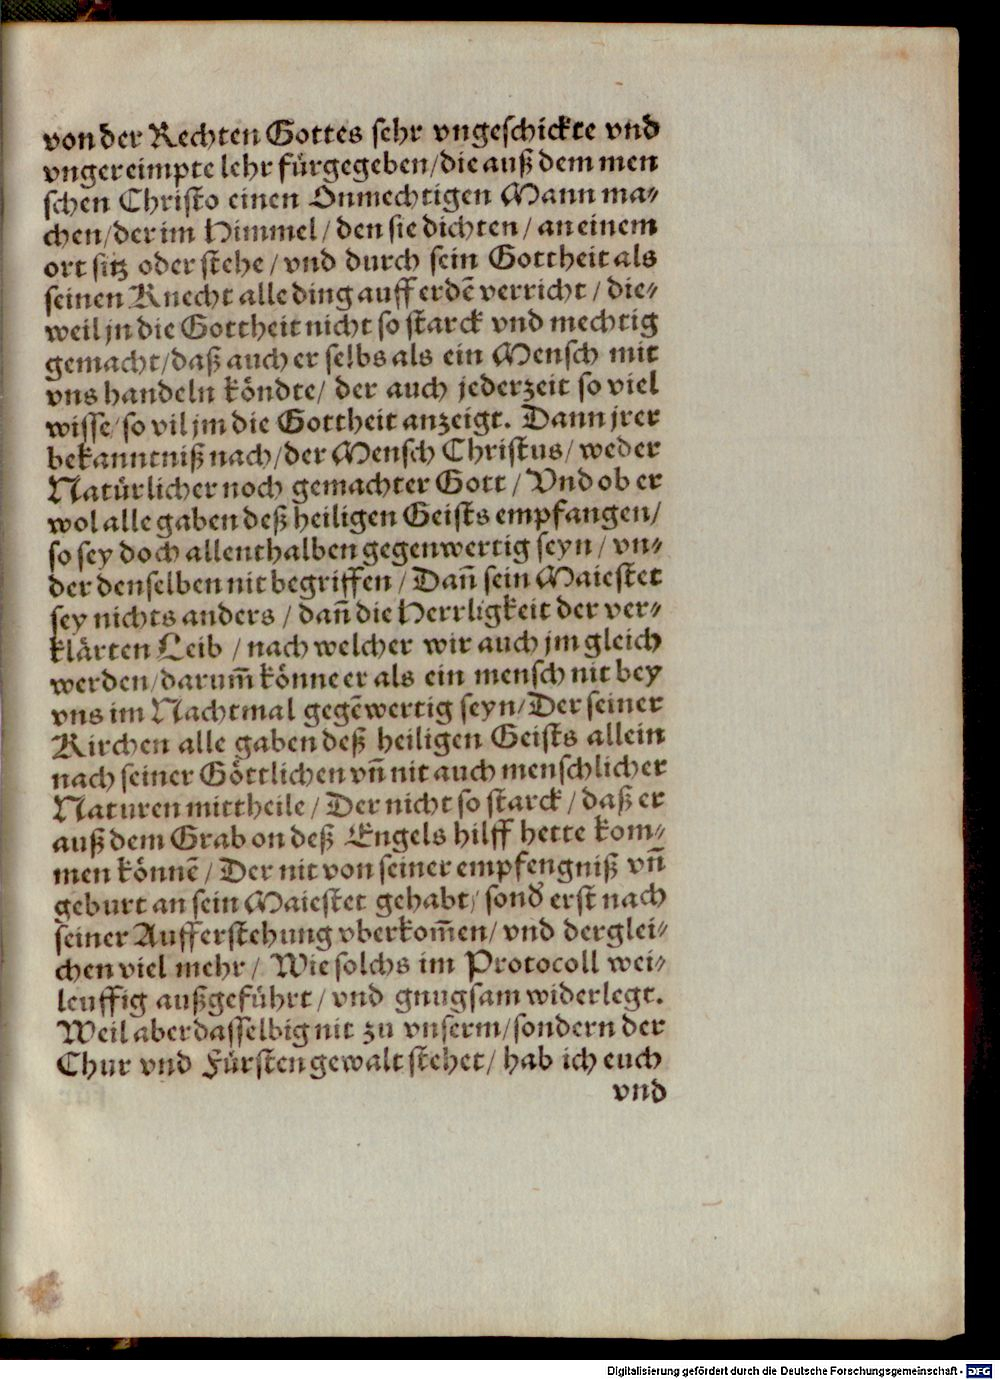 von der Rechten Gottes sehr vngeschickte vnd
vngereimpte lehr fürgegeben/die auß dem men
schen Christo einen Onmechtigen Mann ma-
chen/der im Himmel/den sie dichten/an einem
ort sitz oder stehe/vnd durch sein Gottheit als
seinen Knecht alle ding auff erdẽ verricht/die-
weil jn die Gottheit nicht so starck vnd mechtig
gemacht/daß auch er selbs als ein Mensch mit
vns handeln köndte/ der auch jederzeit so viel
wisse/so vil jm die Gottheit anzeigt. Dann jrer
bekanntniß nach/der Mensch Christus/weder
Natürlicher noch gemachter Gott/Vnd ob er
wol alle gaben deß heiligen Geists empfangen/
so sey doch allenthalben gegenwertig seyn/vn-
der denselben nit begriffen/Dañ sein Maiestet
sey nichts anders/dañ die Herrligkeit der ver-
klärten Leib/nach welcher wir auch jm gleich
werden/darum̃ könne er als ein mensch nit bey
vns im Nachtmal gegẽwertig seyn/Der seiner
Kirchen alle gaben deß heiligen Geists allein
nach seiner Göttlichen vñ nit auch menschlicher
Naturen mittheile/Der nicht so starck/daß er
auß dem Grab on deß Engels hilff hette kom-
men könnẽ/Der nit von seiner empfengniß vñ
geburt an sein Maiestet gehabt/sond̕ erst nach
seiner Aufferstehung vberkom̃en/vnd derglei-
chen viel mehr/ Wie solchs im Protocoll wei-
leuffig außgeführt/vnd gnugsam widerlegt.
Weil aber dasselbig nit zu vnserm/sondern der
Chur vnd Fürsten gewalt stehet/hab ich euch
vnd
Digitalisierung gefördert durch die Deutsche Forschungsgemeinschaft - DFG